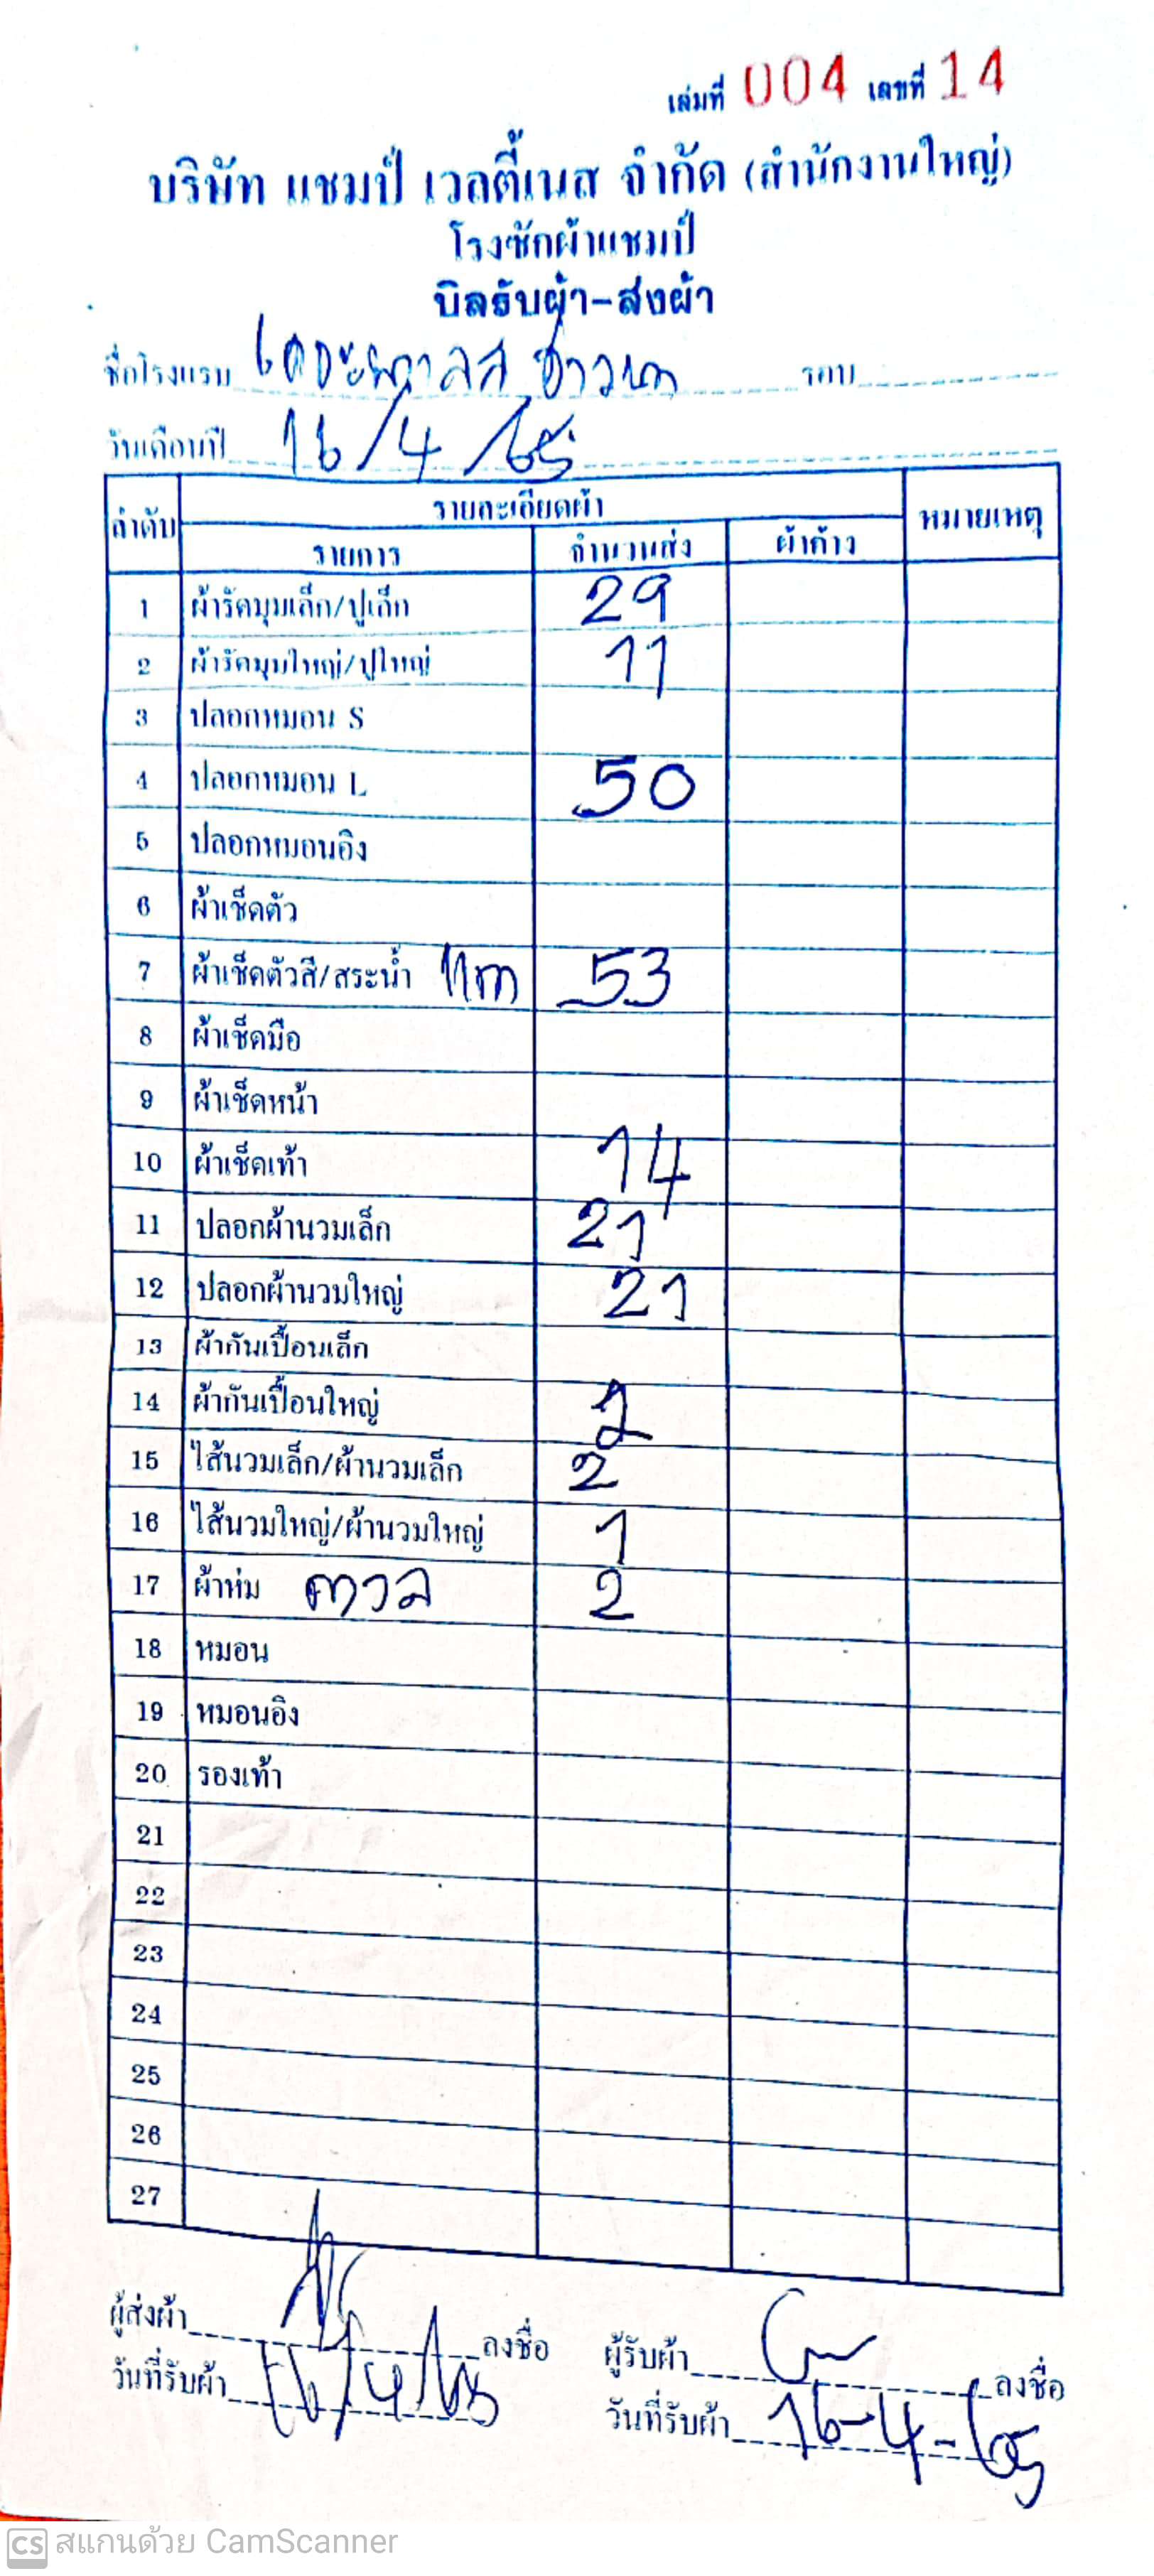 เล่มที่ 004 เลขที่ 14
บริษัท แชมป์ เวลตี้เนส จำกัด (สำนักงานใหญ่)
โรงซักผ้าแชมป์
บิลรับผ้า-ส่งผ้า
ชื่อโรงแรม เดอะพาลส อ่าวนาง รอบ
วันเดือนปี 16/4/65
ลำดับ รายละเอียดผ้า หมายเหตุ
รายการ จำนวนส่ง ผ้าค้าง
1 ผ้ารัดมุมเล็ก/ปูเล็ก 29
2 ผ้ารัดมุมใหญ่/ปูใหญ่ 11
3 ปลอกหมอน S
4 ปลอกหมอน L 50
5 ปลอกหมอนอิง
6 ผ้าเช็ดตัว
7 ผ้าเช็ดตัวสี/สระน้ำ 53
8 ผ้าเช็ดมือ
9 ผ้าเช็ดหน้า
10 ผ้าเช็ดเท้า 14
11 ปลอกผ้านวมเล็ก 21
12 ปลอกผ้านวมใหญ่ 21
13 ผ้ากันเปื้อนเล็ก
14 ผ้ากันเปื้อนใหญ่ 2
15 ไส้นวมเล็ก/ผ้านวมเล็ก 2
16 ไส้นวมใหญ่/ผ้านวมใหญ่ 1
17 ผ้าห่ม 2
18 หมอน
19 หมอนอิง
20 รองเท้า
21
22
23
24
25
26
27
ผู้ส่งผ้า ลงชื่อ ผู้รับผ้า ลงชื่อ
วันที่รับผ้า 16/4/65 วันที่รับผ้า 16-4-65
CS สแกนด้วย CamScanner